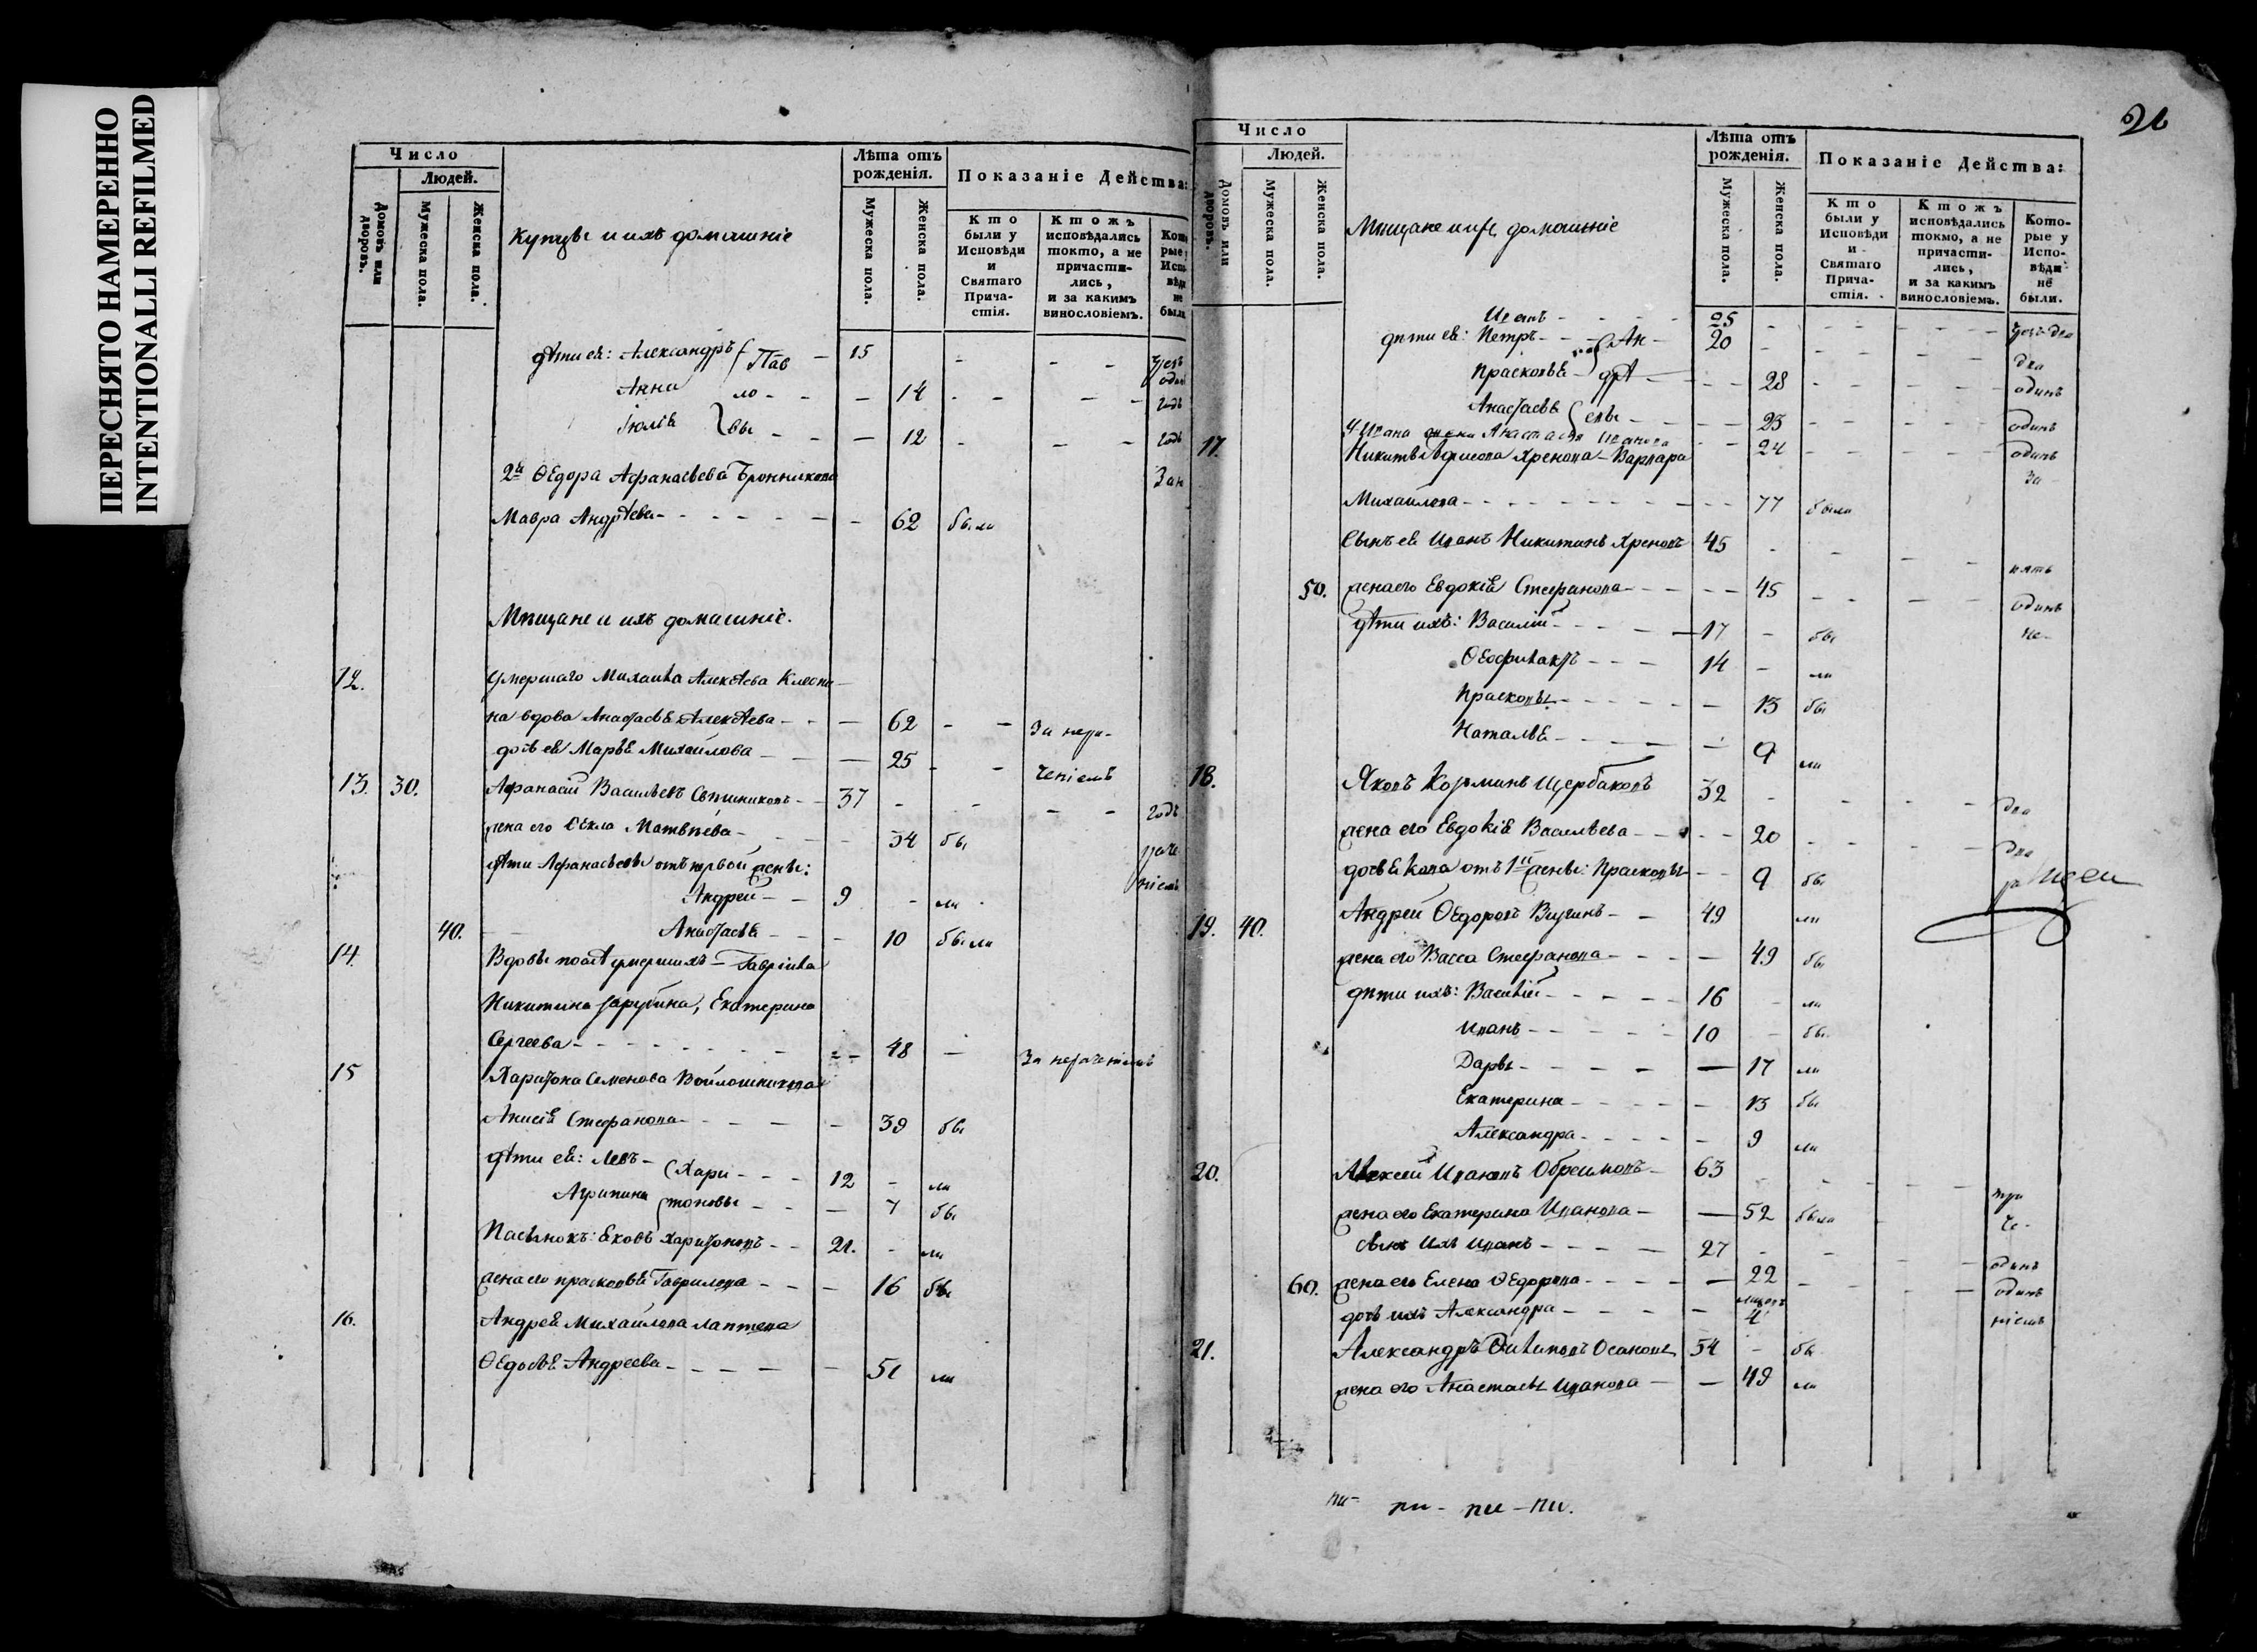 ПЕРЕСНЯТО НАМЕРЕННО
INTENTIONALLI REFILMED
Число
Людей.
Домовъ или дворовъ.
Мужеска пола.
Женска пола.
Купцы и ихъ домашніе
Лѣта отъ рожденія.
Мужеска пола.
Женска пола.
Показаніе Действа:
Кто были у Исповѣди и Святаго Прича- стія.
Ктожъ исповѣдались токмо, а не причасти- лись, и за какимъ винословіемъ.
дѣти ея: Александръ Пав 15
Анна ло - - - 14 - - - - годъ
Іюлія вы - - - 12 - - - годъ
2й Ѳедора Афанасьева Бронникова
Мавра Андрѣева - - - - - 62 были
Мѣщане и ихъ домашніе.
12. Умершаго Михаила Алексѣева Клеопи-
на вдова Анастасія Алексѣева - - - 62 - - За нера-
дочь ея Марья Михайлова - - 25 - - ченіемъ
13. 30. Афанасій Васильевъ Свѣшниковъ - - 37 - - - - годъ
жена его Ѳекла Матвѣева - - 34 бы
дѣти Афанасьевы отъ первой жены:
Андрей - - 9 - ли
40. Анастасія - - - 10 были
14. Вдовы послѣ умершихъ - Гавріила
Никитина Зарубина, Екатерина
Сергеева - - - - - 48 - За нераченіемъ
15 Харитона Семенова Войлошникова
Анисія Стефанова - - - - 39 бы
дѣти ея: Левъ - Хари - - - 12 - ли
Агрипина тоновы - - - 7 бы
Пасынокъ: Яковъ Харитоновъ - - 21. - ли
жена его Прасковья Гаврилова - - - 16 бы
16. Андрея Михайлова Лаптева
Ѳедосья Андреева - - - - - 51 ли
Число
Людей.
Домовъ или дворовъ.
Мужеска пола.
Женска пола.
Мѣщане и их домашніе
Лѣта отъ рожденія.
Мужеска пола.
Женска пола.
Показаніе Действа:
Кто были у Исповѣди и Святаго Прича- стія.
Ктожъ исповѣдались токмо, а не причасти- лись, и за какимъ винословіемъ.
Кото- рые у Испо- вѣди не были.
Иванъ - - - - 25 - - - - - -
дѣти ея: Петръ - - - Ан - 20 - - - - два
Прасковья - дрѣ - - - 28 - - - - одинъ
Анастасія евы - - - 25 - - - - одинъ
У Ивана жена Анастасія Иванова - - 24 - - - - одинъ
17. Никиты Борисова Хренова - Варвара За
Михайлова - - - - - - - - 77 была
Сынъ ея Иванъ Никитинъ Хреновъ 45 - - - - пять
50. жена его Евдокія Стефанова - - - - 45 - - - - одинъ
дѣти ихъ: Василій - - - - 17 - бы не-
Ѳеофилактъ - - - 14 - ли
Прасковья - - - - - 13 бы
Наталья - - - - - 9 ли
18. Яковъ Козминъ Щербаковъ 32 - - - - два
жена его Евдокія Васильева - - - - 20 - - - - два
дочь Якова отъ 1й жены: Прасковья - - 9 бы
19. 40. Андрей Ѳедоровъ Вягинъ - - 49 ли
жена его Васса Стефанова - - - - 49 бы
дѣти ихъ: Василій - - - - - 16 - ли
Иванъ - - - - - 10 - бы
Дарья - - - - - 17 ли
Екатерина - - - - - 13 бы
Александра - - - - - 9 ли
20. Алексей Ивановъ Обросимовъ - 63 - - - - три
жена его Екатерина Иванова - - 52 была че-
сынъ ихъ Иванъ - - - - 27 - - - - одинъ
60. жена его Елена Ѳедорова - - - - - 22 - - - - одинъ
дочь ихъ Александра - - - - - 4 ніемъ
21. Александръ Филиповъ Осановъ 54 - бы
жена его Анастасья Иванова - - 49 ли